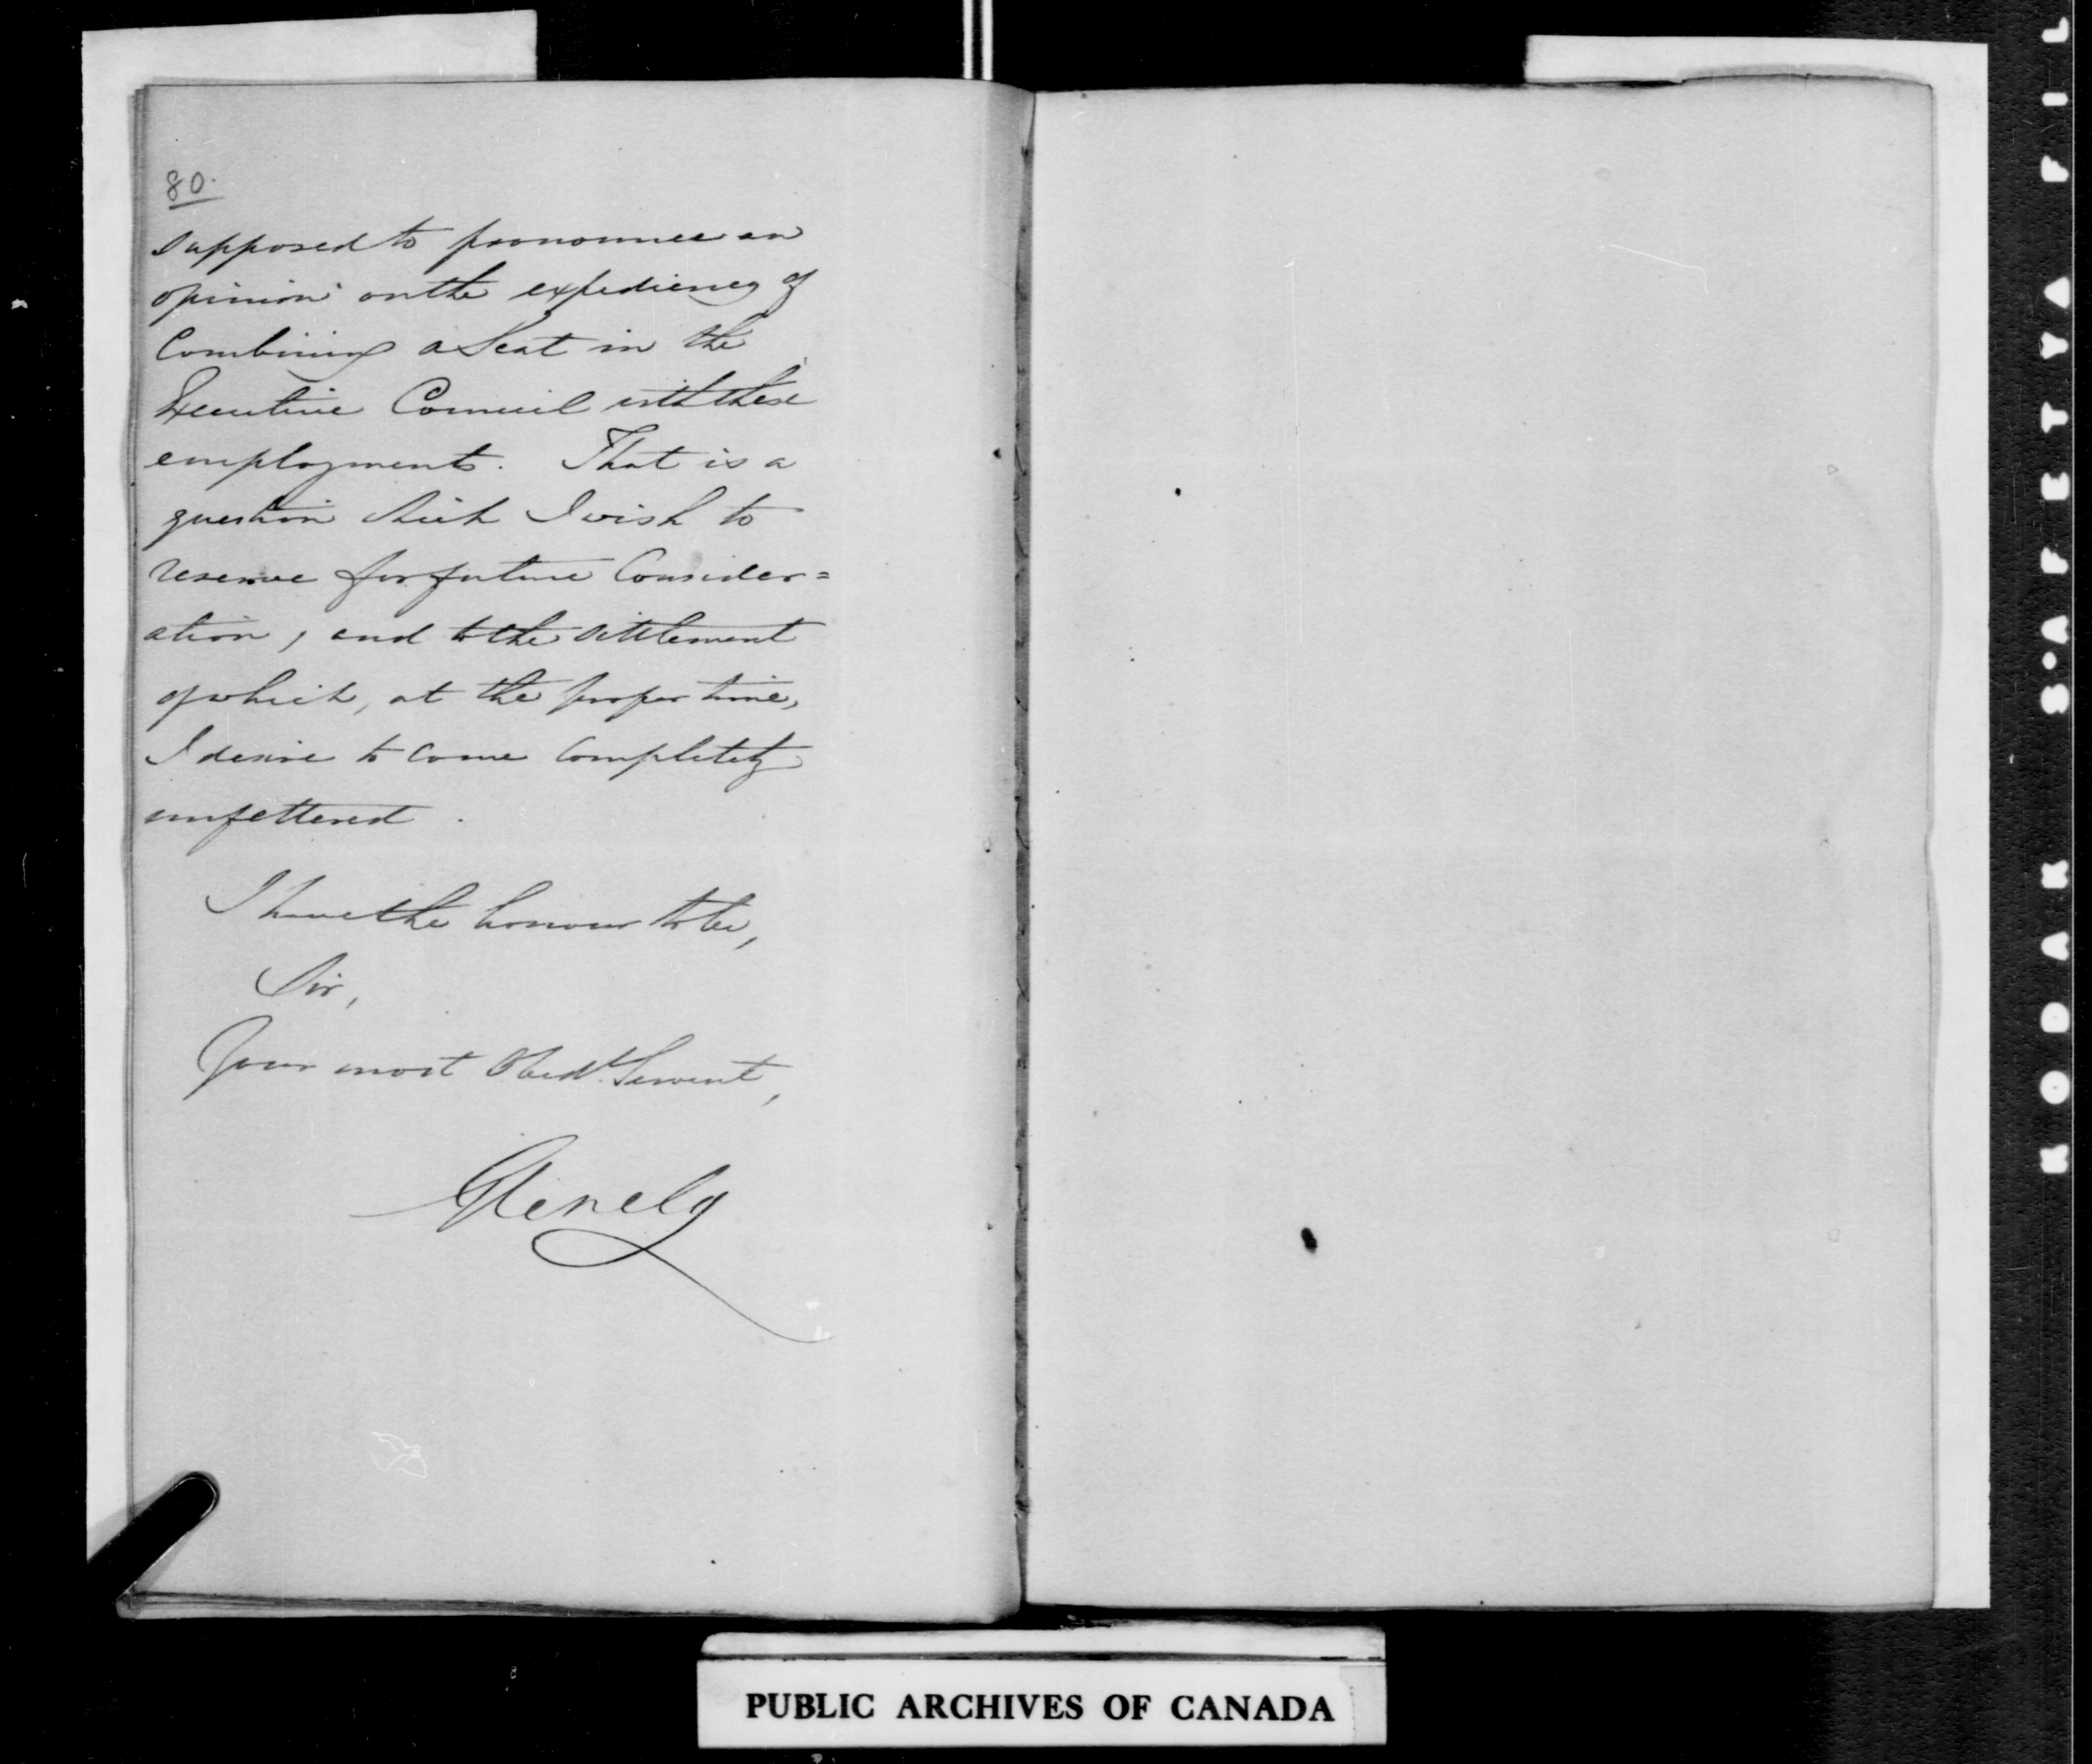 80.
supposed to pronounce an
opinion on the expediency of
Combining a Seat in the
Executive Council with these
employments. That is a
question which I wish to
reserve for future Consider=
ation, and to the settlement
of which, at the proper time,
I desire to come completely
unfettered.
I have the honour to be,
Sir,
Your most Obedt. Servant,
Glenelg
PUBLIC ARCHIVES OF CANADA
KODAK SAFETY FIL